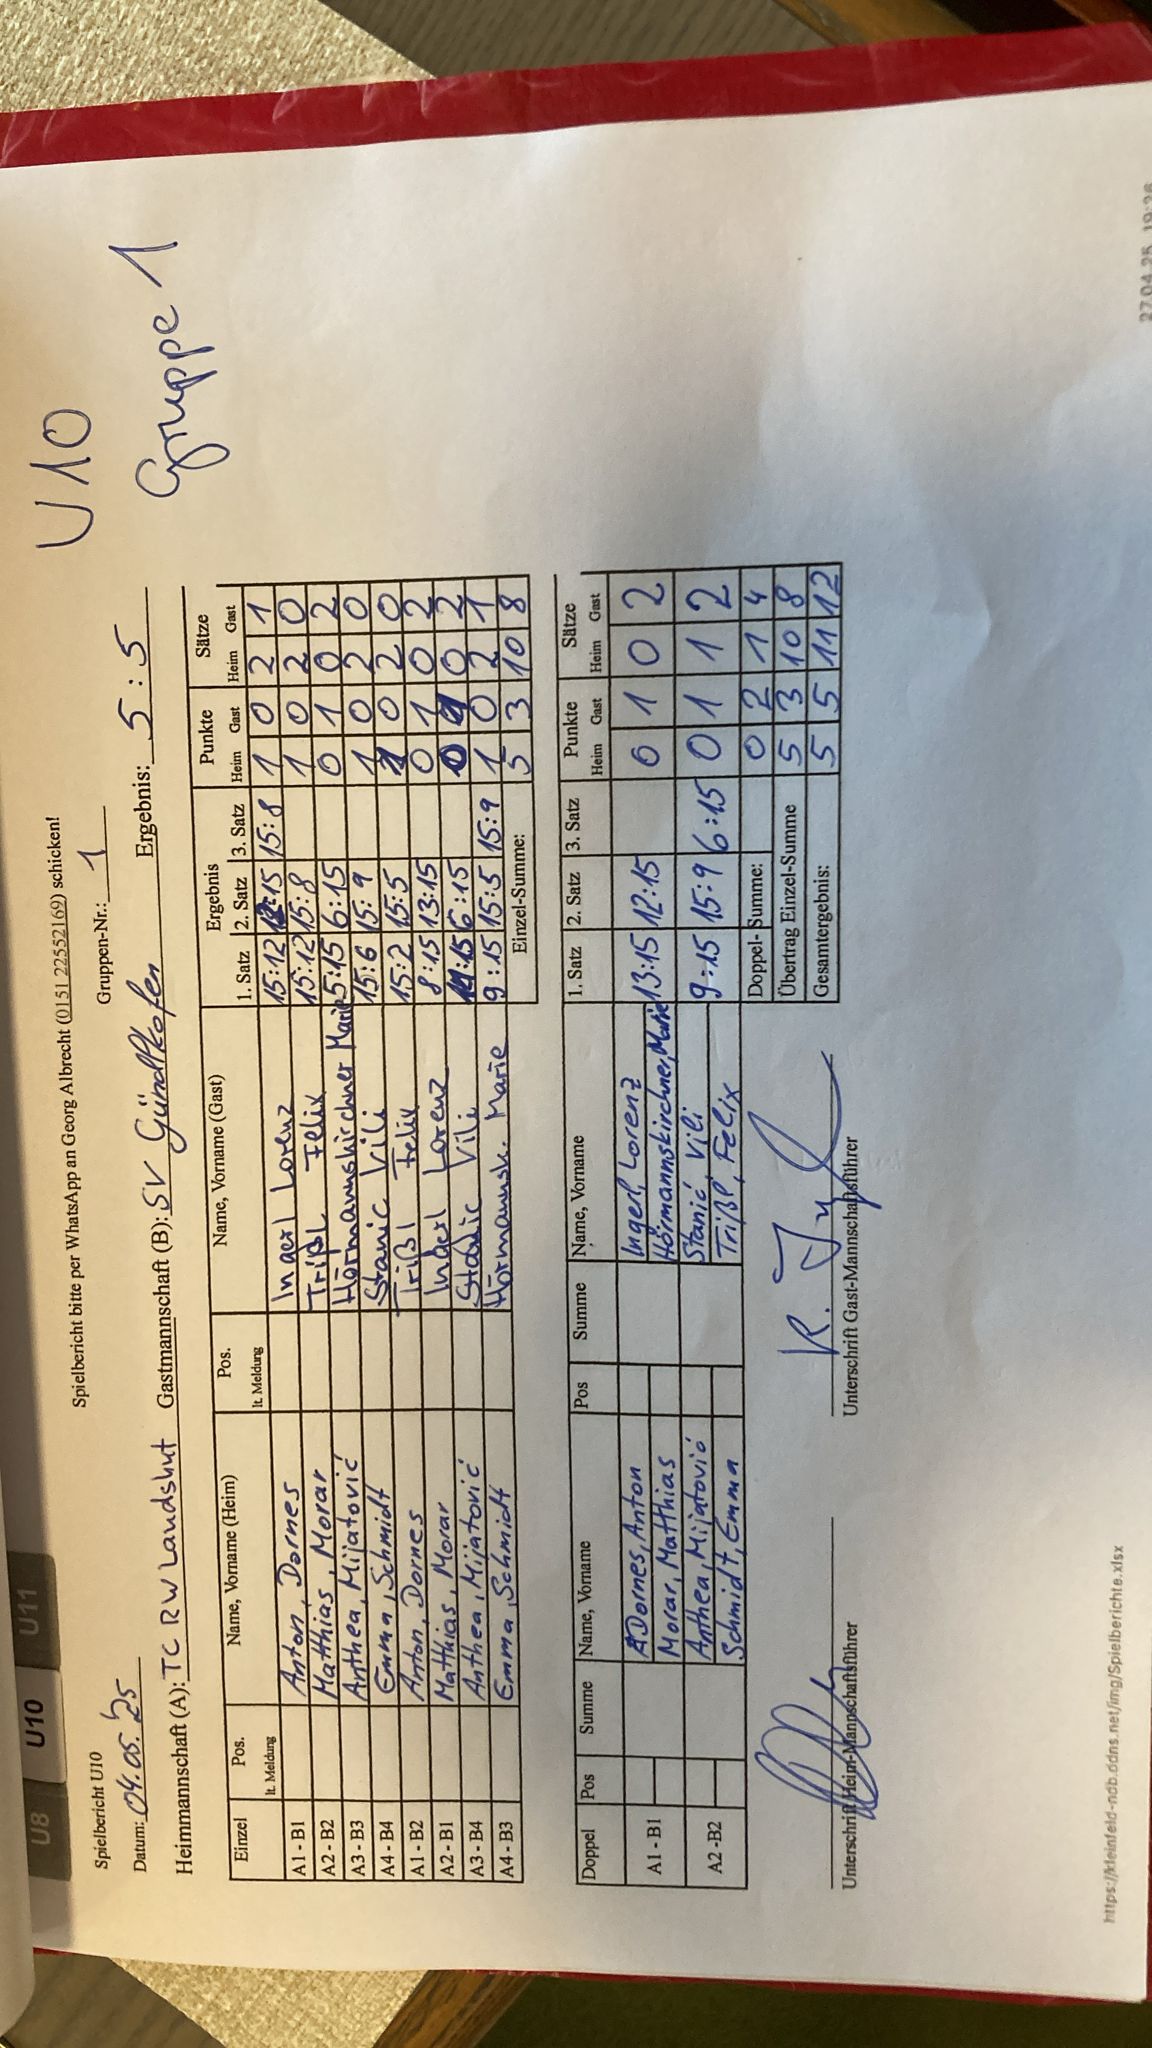 U8 U10 U11
Spielbericht U10 Spielbericht bitte per WhatsApp an Georg Albrecht (0151 22552169) schicken!
U10
Datum: 04.05.25 Gruppen-Nr.: 1
Heimmannschaft (A): TC RW Landshut Gastmannschaft (B): SV Gündlkofen Ergebnis: 5:5
Gruppe 1
Einzel Pos. lt. Meldung Name, Vorname (Heim) Pos. lt. Meldung Name, Vorname (Gast) Ergebnis Punkte Sätze
1. Satz 2. Satz 3. Satz Heim Gast Heim Gast
A1 - B1 Anton, Dornes Ingerl Lorenz 15:12 12:15 15:8 1 0 2 1
A2 - B2 Matthias, Morar Trißl Felix 15:12 15:8 1 0 2 0
A3 - B3 Anthea, Mijatović Hörmannskirchner Marie 5:15 6:15 0 1 0 2
A4 - B4 Emma, Schmidt Stanić Vili 15:6 15:9 1 0 2 0
A1 - B2 Anton, Dornes Trißl Felix 15:2 15:5 1 0 2 0
A2 - B1 Matthias, Morar Ingerl Lorenz 8:15 13:15 0 1 0 2
A3 - B4 Anthea, Mijatović Stanić Vili 11:15 6:15 0 1 0 2
A4 - B3 Emma, Schmidt Hörmannsk. Marie 9:15 15:5 15:9 1 0 2 1
Einzel-Summe: 5 3 10 8
Doppel Pos Summe Name, Vorname Pos Summe Name, Vorname 1. Satz 2. Satz 3. Satz Punkte Sätze
Heim Gast Heim Gast
A1 - B1 Dornes, Anton Ingerl, Lorenz 13:15 12:15 0 1 0 2
Morar, Matthias Hörmannskirchner, Marie
A2 -B2 Anthea, Mijatović Stanić Vili 9:15 15:9 6:15 0 1 1 2
Schmidt, Emma Trißl, Felix
Doppel- Summe: 0 2 1 4
Übertrag Einzel-Summe 5 3 10 8
Gesamtergebnis: 5 5 11 12
Unterschrift Heim-Mannschaftsführer Unterschrift Gast-Mannschaftsführer
https://kleinfeld-ndb.ddns.net/img/Spielberichte.xlsx 27.04.25, 19:26